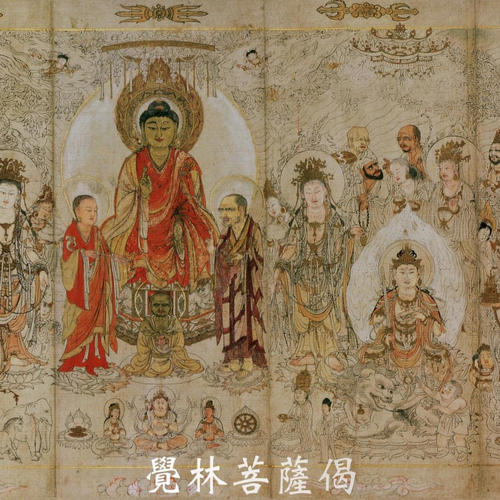 覺林菩薩偈